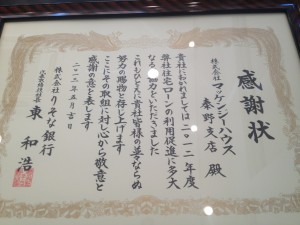 感謝状
株式会社マッケンジーハウス
秦野支店 殿
貴社におかれましては二〇一二年度
弊社住宅ローンの利用促進に多大
なるご努力をいただきました
これもひとえに貴社皆様の並々ならぬ
努力の賜物と存じ上げます
ここにその取組に対し心から敬意と
感謝の意を表します
二〇一三年五月吉日
株式会社りそな銀行
代表取締役社長
東 和浩